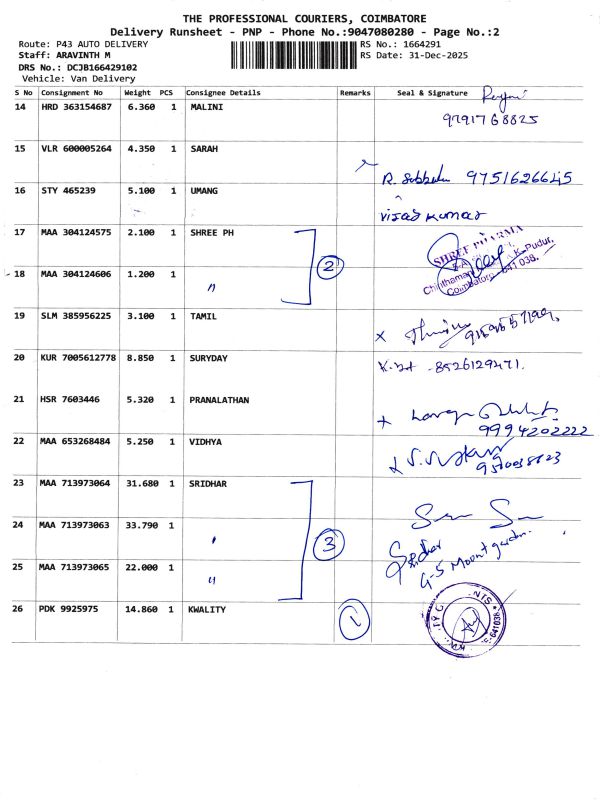 THE PROFESSIONAL COURIERS, COIMBATORE
Delivery Runsheet - PNP - Phone No.:9047080280 - Page No.:2
Route: P43 AUTO DELIVERY RS No.: 1664291
Staff: ARAVINTH M RS Date: 31-Dec-2025
DRS No.: DCJB166429102
Vehicle: Van Delivery
S No Consignment No Weight PCS Consignee Details Remarks Seal & Signature
14 HRD 363154687 6.360 1 MALINI
9791768825
15 VLR 600005264 4.350 1 SARAH
R. Subbulu 9751626645
16 STY 465239 5.100 1 UMANG
Visas Kumar
17 MAA 304124575 2.100 1 SHREE PH
2
SHREE PHARMA
K.K.Pudur,
Chinthamani
Coimbatore - 641 038.
18 MAA 304124606 1.200 1 "
19 SLM 385956225 3.100 1 TAMIL
x
20 KUR 7005612778 8.850 1 SURYDAY
8526129471.
21 HSR 7603446 5.320 1 PRANALATHAN
9994202222
22 MAA 653268484 5.250 1 VIDHYA
23 MAA 713973064 31.680 1 SRIDHAR
24 MAA 713973063 33.790 1
3
Sridhar
G-5 Mount garden.
25 MAA 713973065 22.000 1 "
26 PDK 9925975 14.860 1 KWALITY
1
641038